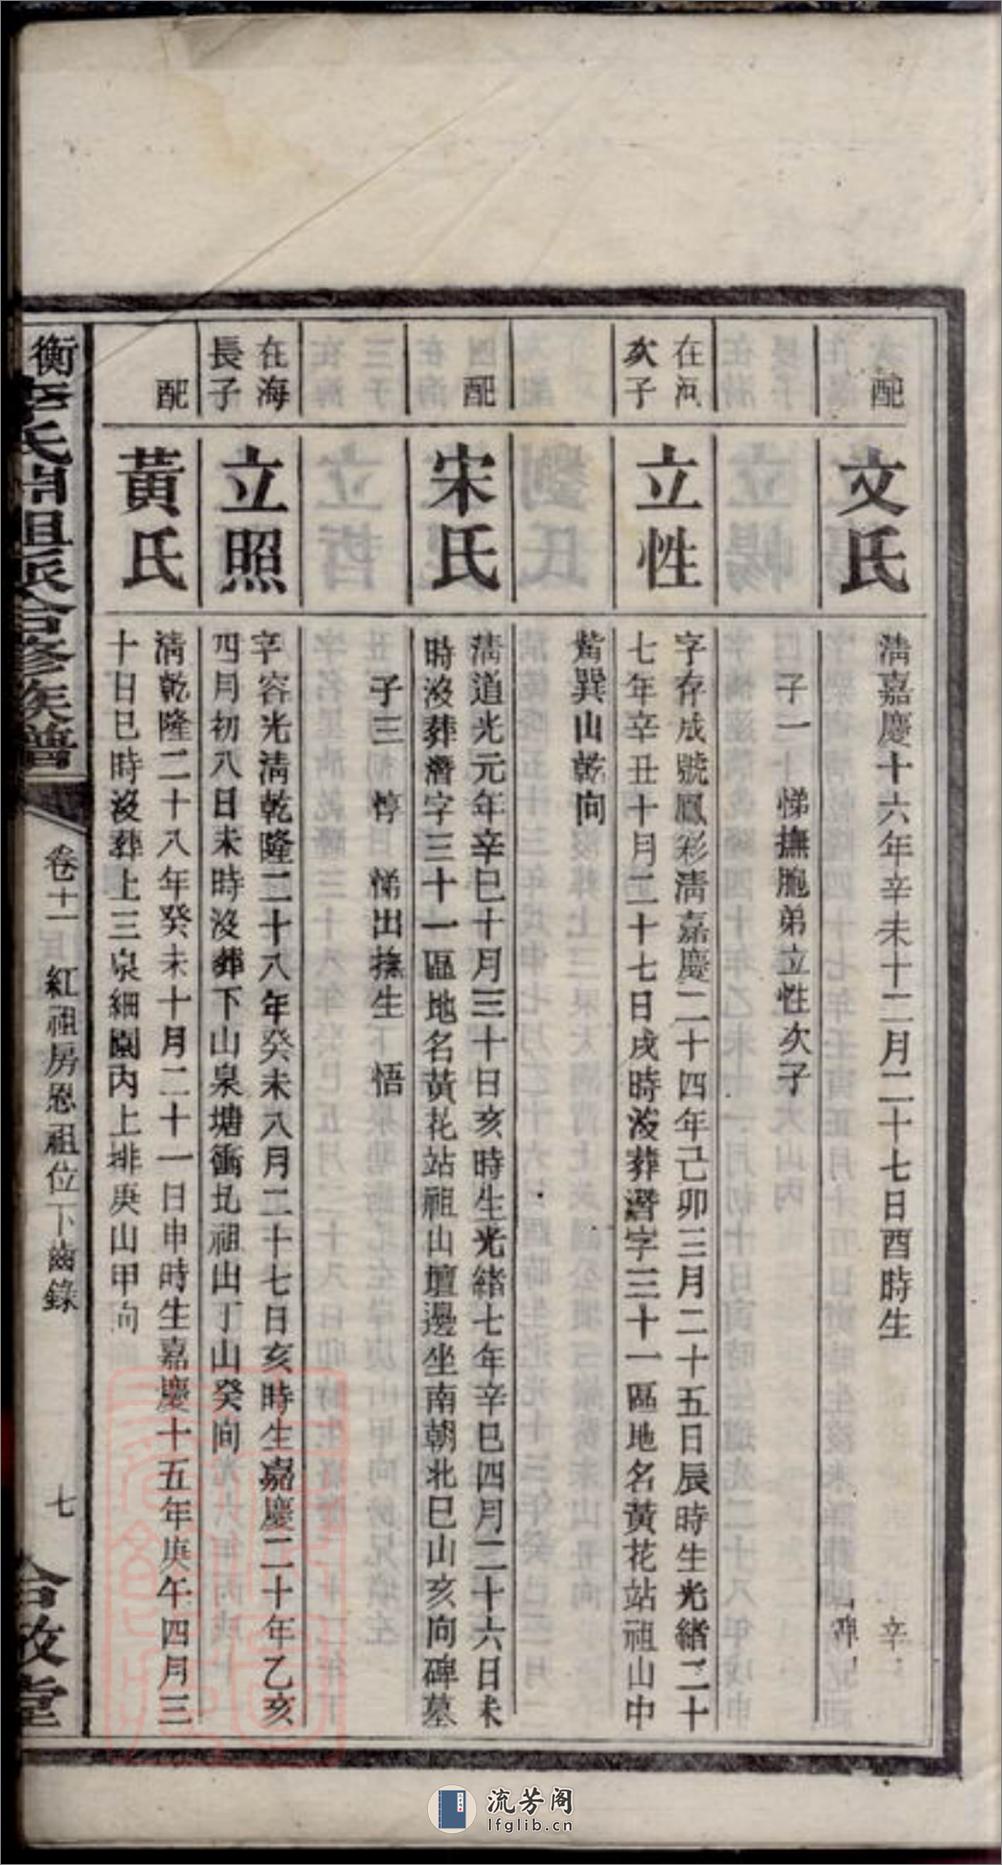 配
文氏
清嘉慶十六年辛未十二月二十七日酉時生
辛
子一 悌撫胞弟立性次子
在河
次子
立性
字存成號鳳彩清嘉慶二十四年己卯三月二十五日辰時生光緒二十
七年辛丑十月二十七日戌時沒葬潛字三十一區地名黃花站祖山中
巽山乾向
配
宋氏
清道光元年辛巳十月三十日亥時生光緒七年辛巳四月二十六日未
時沒葬潛字三十一區地名黃花站祖山壇邊坐南朝北巳山亥向碑墓
子三 惇 悌出撫生 悟
在海
長子
立照
字容光清乾隆二十八年癸未八月二十七日亥時生嘉慶二十年乙亥
四月初八日未時沒葬下山泉塘衝圠祖出丁山癸向
配
黃氏
清乾隆二十八年癸未十月二十一日申時生嘉慶十五年庚午四月三
十日巳時沒葬上三泉細園內上排庚山甲向
衡李氏開祖派合修族譜
卷十一 紅祖房恩祖位下齒錄
七
合敬堂
流芳阁
lfglib.cn